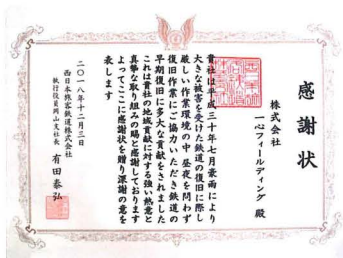 感謝状
株式会社
一心フィールディング 殿
貴社は平成三十年七月豪雨により
大きな被害を受けた鉄道の復旧に際し
厳しい作業環境の中 昼夜を問わず
復旧作業にご協力いただき鉄道の
早期復旧に多大な貢献をされました
これは貴社の地域貢献に対する強い熱意と
真摯な取り組みの賜と感謝しております
よってここに感謝状を贈り深謝の意を
表します
二〇一八年十二月三日
西日本旅客鉄道株式会社
執行役員岡山支社長 有田泰弘